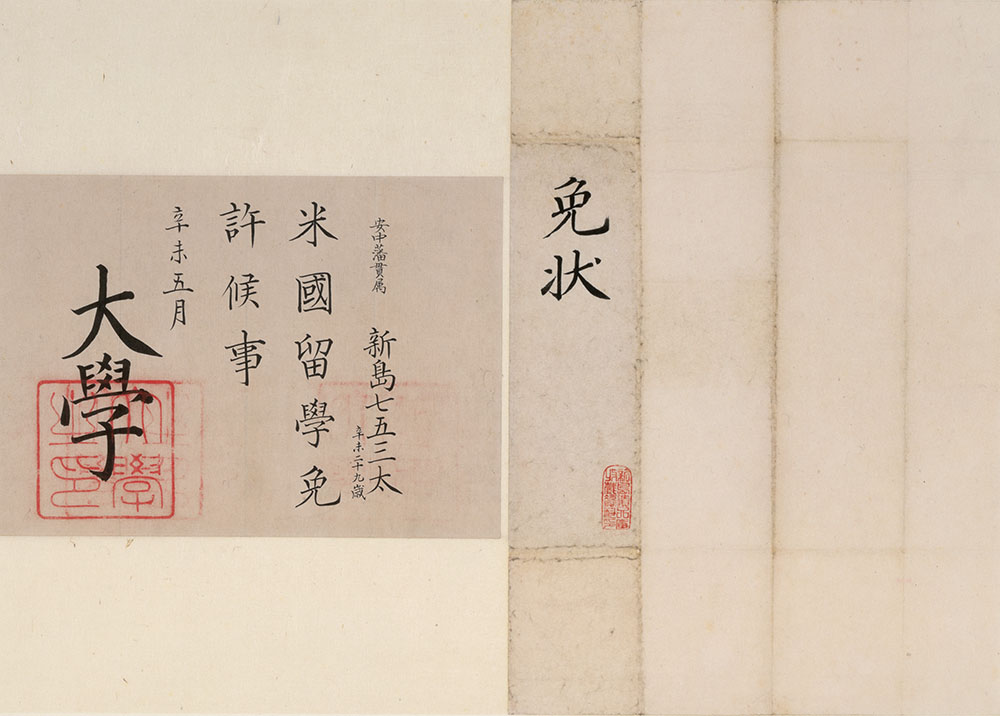 免状
安中藩貫属
新島七五三太
辛未二十九歳
米國留學免
許候事
辛未五月
大學